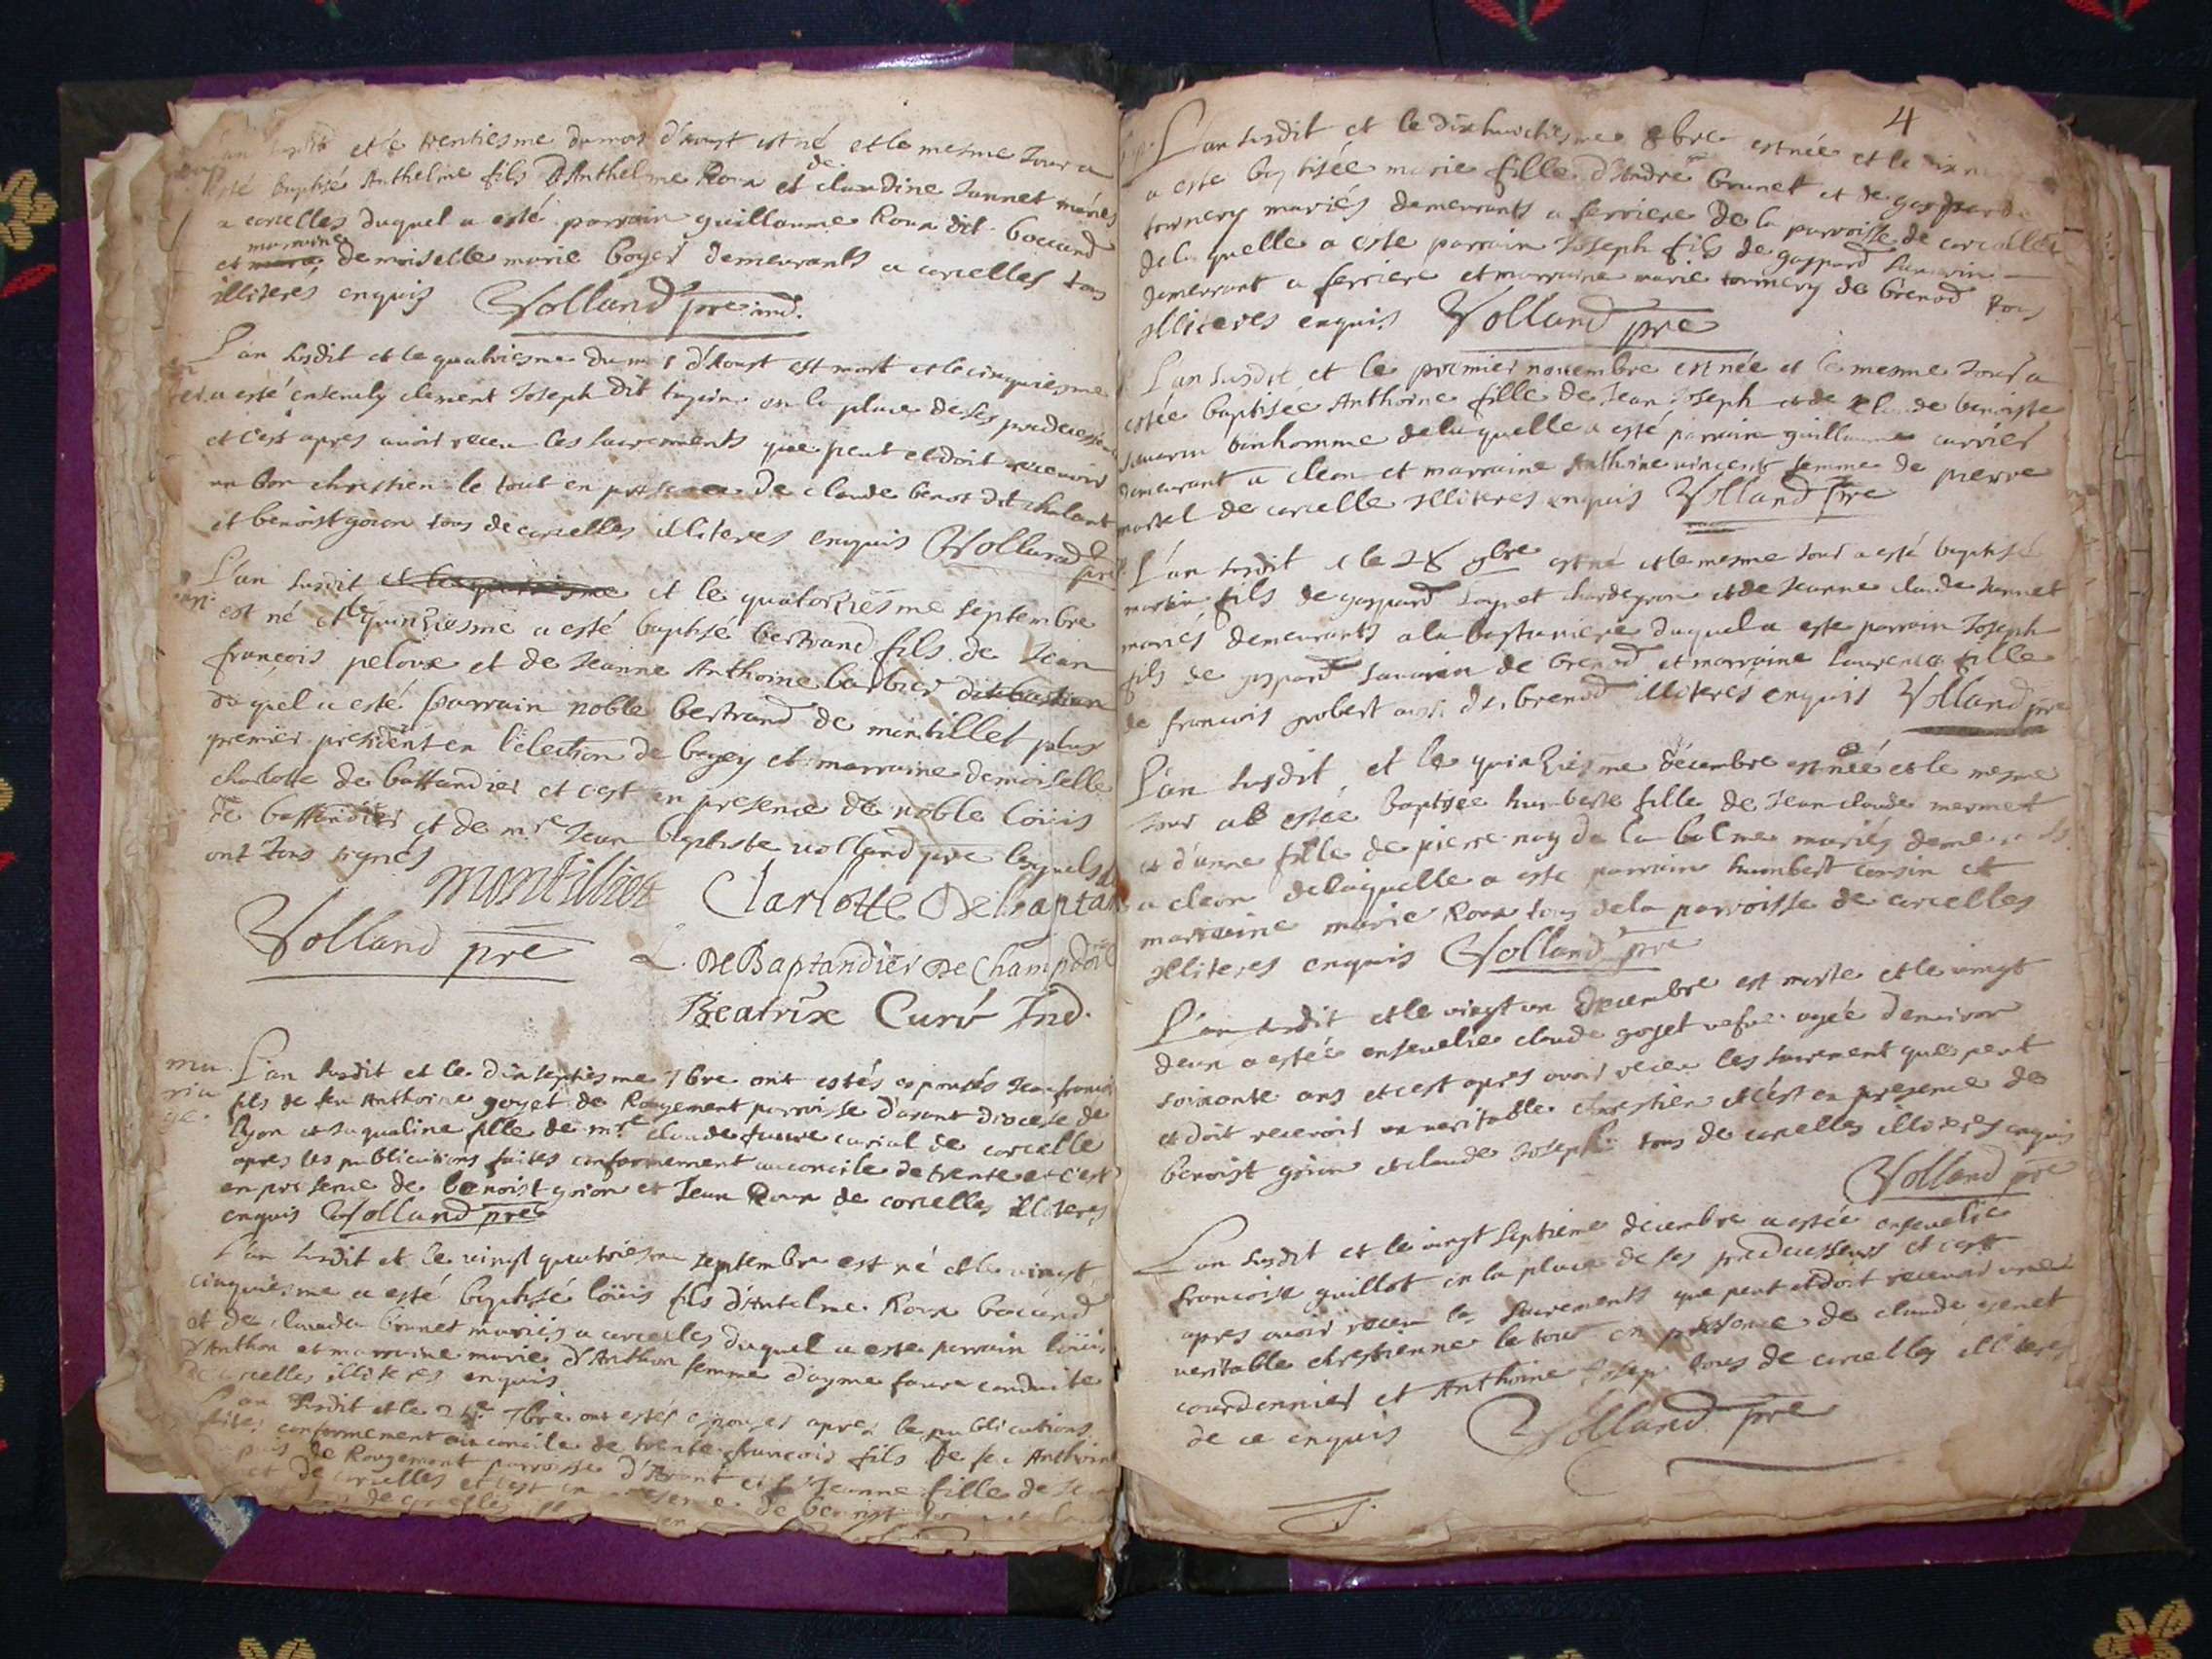 L'an susdit et le trentiesme du mois d'Aoust est né et le mesme Jour a
esté baptisé Anthelme fils D'Anthelme Roux et de claudine Jannet mariés
a corcelles duquel a esté parrain guillaume Roux dit bocand
et marraine demoiselle marie boyer demeurants a corcelles tous
illiterés enquis Volland pre ind.
L'an susdit et le quatriesme du mois d'Aoust est mort et le cinquiesme
a esté ensevely clement Joseph dit en la place de ses predecesseurs
et c'est apres avoir receu les sacrements que peut et doit recevoir
un bon chrestien le tout en presence de claude benot dit chalant
et benoist goion tous de corcelles illiteres enquis Volland pre
L'an susdit et le quatorziesme septembre
est né et le quinziesme a esté baptisé bertrand fils de Jean
françois peloux et de Jeanne Anthoine barbier
duquel a esté parrain noble bertrand de montillet plus
premier president en l'election de bugey et marraine demoiselle
charlotte de battandier et c'est en presence de noble loüis
de battandier et de mre Jean baptiste volland pre lesquels
ont tous signés
montilliet Charlotte De baptan
Volland pre L. De Baptandier De Champdor
Beatrix Curé Ind.
ma
ria
ge
L'an susdit et le dixseptiesme 7bre ont estés espousés Jean francois
fils de feu Anthoine goyet de Rougement parroisse d'arant diocese de
lyon et Jaqueline fille de mre claude favre curial de corcelle
apres les publications faites conformement au concile de trente et c'est
en presence de benoist goion et Jean Roux de corcelles illiteres
enquis Volland pre
L'an susdit et le vingt quatriesme septembre est né et le vingt
cinquiesme a esté baptisé loüis fils d'Antelme Roux bocand
et de clauda brunet mariés a corcelles duquel a esté parrain loüis
D'Anthon et marraine marie D'Anthon femme d'ayme favre conduite
de corcelles illiteres enquis
L'an susdit et le 7bre ont estés espousés apres les publications
faites conformement au concile de trente francois fils de feu Anthoine
de Rougemont parroisse d'Arant et Jeanne fille de
de corcelles et c'est en presence de benoist
4
L'an susdit et le dixhuictiesme 8bre est née et le
a esté baptisée marie fille d'André brunet et de gasparde
tornery mariés demeurants a ferriere de la parroisse de corcelles
de laquelle a esté parrain Joseph fils de gaspard savarin
demeurant a ferriere et marraine marie tornery de brenod tous
illiteres enquis Volland pre
L'an susdit et le premier novembre est née et le mesme Jour a
estée baptisée Anthoine fille de Jean Joseph et de claude benoiste
savarin bonhomme de laquelle a esté parrain guillaume carrier
demeurant a cleon et marraine Anthoine vincent femme de pierre
martel de corcelle illiteres enquis Volland pre
L'an susdit et le 28 9bre est né et le mesme Jour a esté baptisé
martin fils de gaspard et de Jeanne claude Jannet
mariés demeurants a la duquel a esté parrain Joseph
fils de gaspard savarin de brenod et marraine laurence fille
de francois grobert aussi de brenod illiterés enquis Volland pre
L'an susdit et le quinziesme décembre est née et le mesme
Jour a estée baptisée humberte fille de Jean claude mermet
et d'anne fille de pierre nay de la balme mariés
a cleon de laquelle a esté parrain humbert consin et
marraine marie Roux tous de la parroisse de corcelles
illiteres enquis Volland pre
L'an susdit et le vingt un decembre est morte et le vingt
deux a estée ensevelie claude goyet vefve agée d'environ
soixante ans et c'est apres avoir receu les sacrement que peut
et doit recevoir un veritable chrestien et c'est en presence de
benoist goion et claude Joseph tous de corcelles illiteres enquis
Volland pre
L'an susdit et le vingt septieme decembre a estée ensevelie
francoise guillot en la place de ses predecesseurs et c'est
apres avoir receu les sacrements que peut et doit recevoir une
veritable chrestienne le tout en presence de claude genet
courdonnier et Anthoine Josep tous de corcelles illiteres
de ce enquis Volland pre